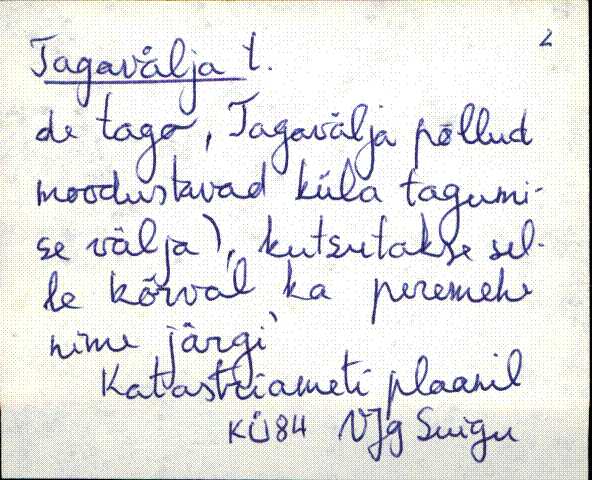 2
Tagavälja t.
de taga, Tagavälja põllud
moodustavad küla tagumi-
se välja), kutsutakse sel-
le kõrval ka peremehe
nime järgi
Katastriameti plaanil
KÜ84 VJg Suigu